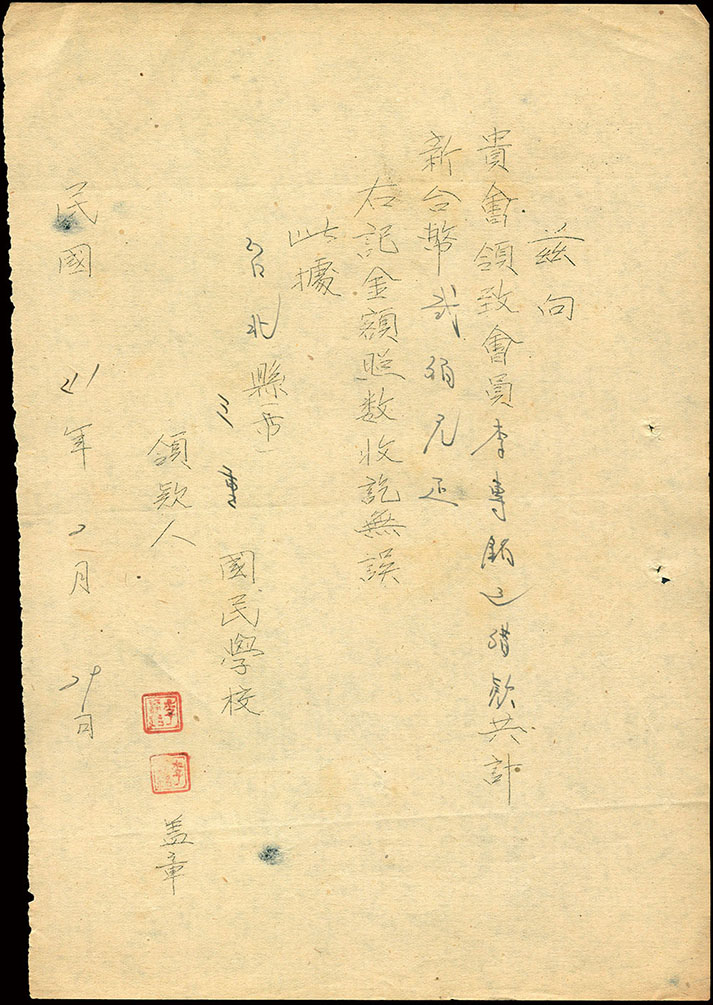 茲向
貴會領致會員李專
款共計
新台幣貳佰元正
右記金額照数收訖無誤
此據
台北縣市
三重國民學校
領款人
盖章
民國41年2月29日